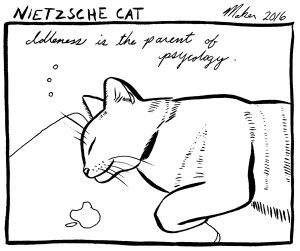 NIETZSCHE CAT
Maker 2016
Idleness is the parent of
psycology.